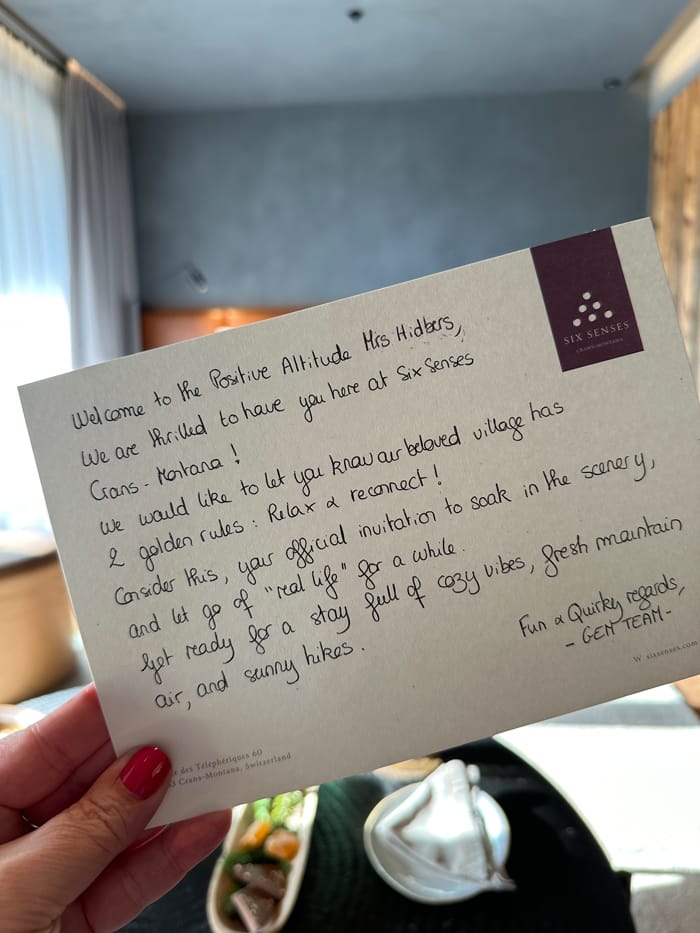 SIX SENSES
CRANS-MONTANA
Welcome to the Positive Altitude Mrs Hidbers,
We are thrilled to have you here at Six Senses
Crans-Montana!
We would like to let you know our beloved village has
2 golden rules: Relax & reconnect!
Consider this, your official invitation to soak in the scenery,
and let go of "real life" for a while.
Get ready for a stay full of cozy vibes, fresh mountain
air, and sunny hikes.
Fun & Quirky regards,
- GEM TEAM -
W sixsenses.com
des Téléphériques 60
Crans-Montana, Switzerland